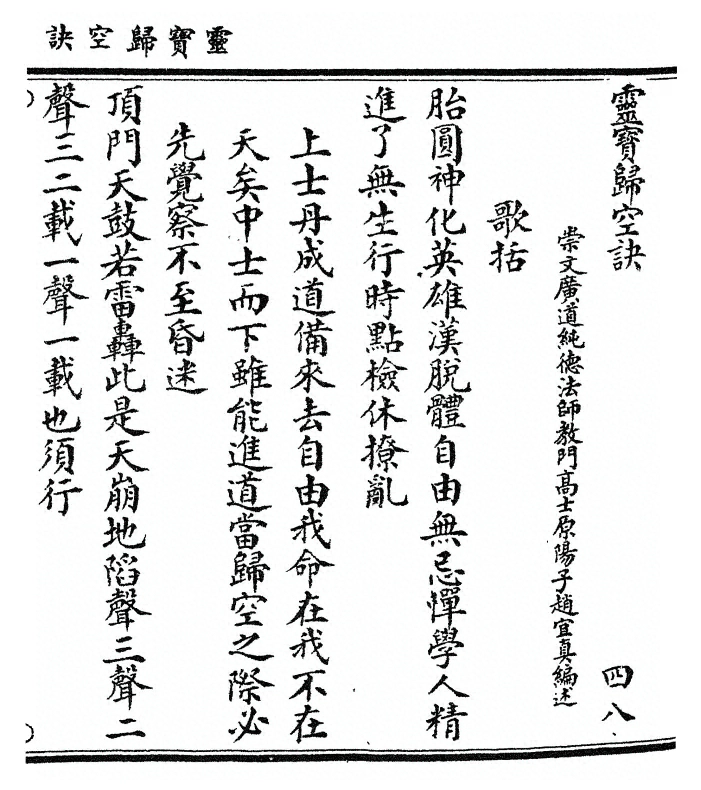 靈寶歸空訣
靈寶歸空訣
四八
崇文廣道純德法師教門高士原陽子趙宜真編述
歌括
胎圓神化英雄漢脫體自由無忌憚學人精
進了無生行時點檢休撩亂
上士丹成道備來去自由我命在我不在
天矣中士而下雖能進道當歸空之際必
先覺察不至昏迷
頂門天鼓若雷轟此是天崩地陷聲三聲二
聲三二載一聲一載也須行